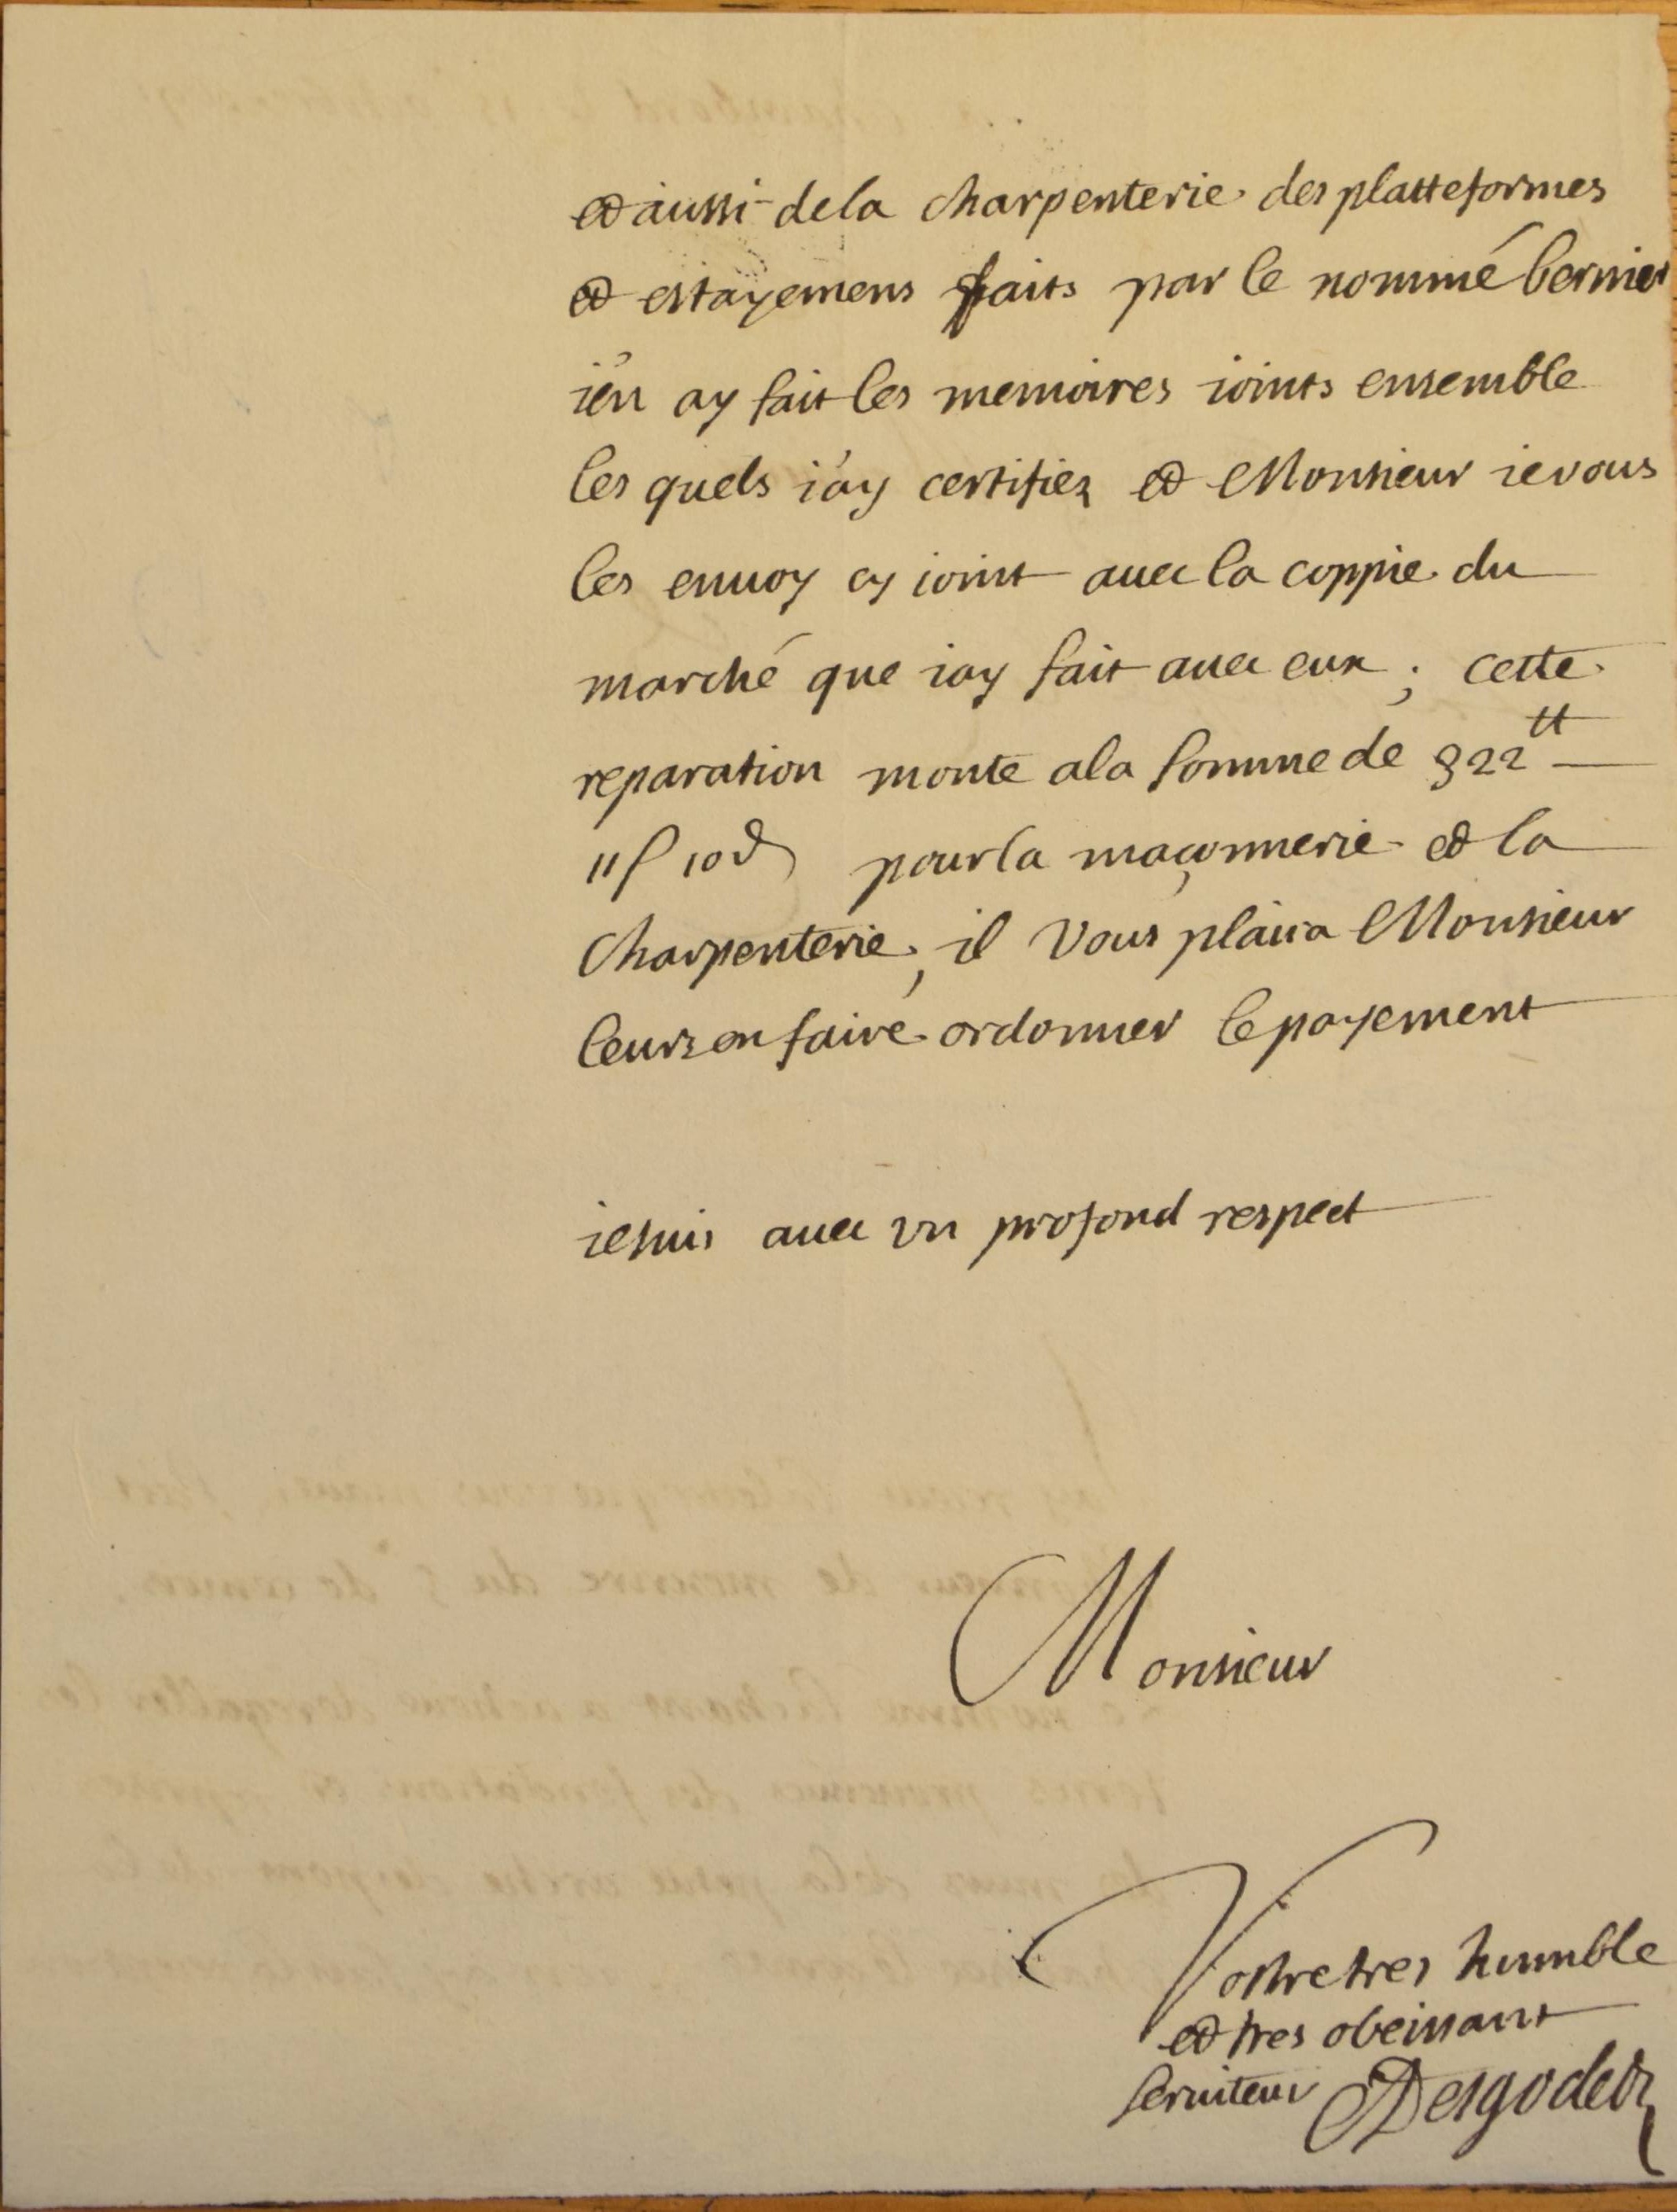 et aussi de la charpenterie des platteformes
et estayemens faits par le nommé bernier
i'en ay fait les memoires ioints ensemble
les quels i'ay certifiez et Monsieur ie vous
les enuoy cy ioint auec la coppie du
marché que iay fait auec eux ; cette
reparation monte a la somme de 322 tt
11 s 10 d pour la maçonnerie et la
charpenterie, il vous plaira Monsieur
leurs en faire ordonner le payement
ie suis auec vn profond respect
Monsieur
Vostre tres humble
et tres obeissant
seruiteur Desgodetz